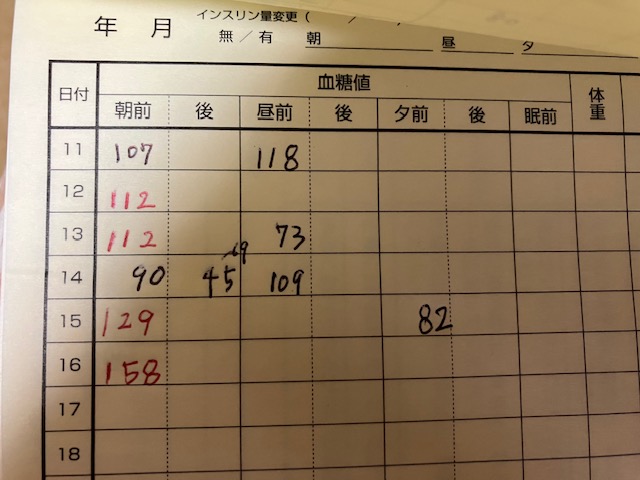 年 月 インスリン量変更( / )
無 / 有 朝 昼 夕
日付 血糖値 体重
朝前 後 昼前 後 夕前 後 眠前
11 107 118
12 112
13 112 73
69
14 90 45 109
15 129 82
16 158
17
18